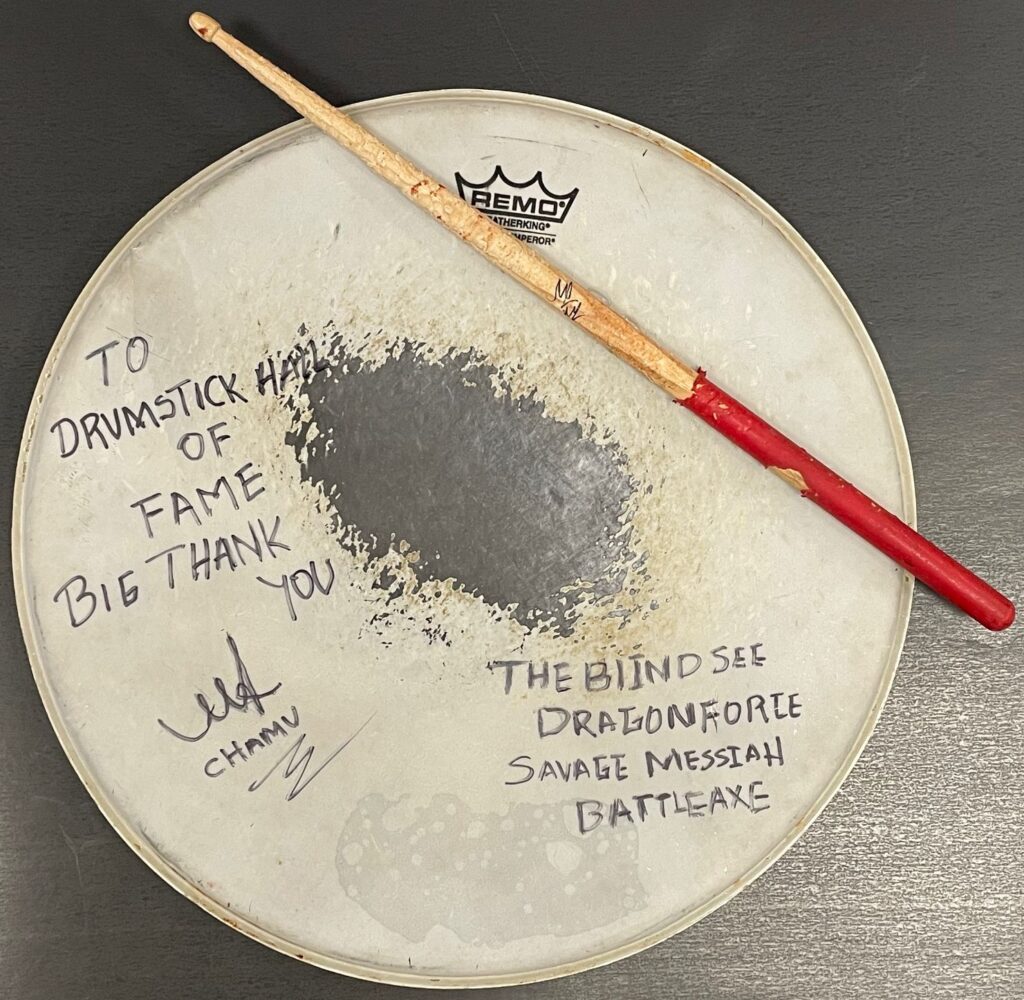 REMO
ATHERKING®
MPEROR®
TO
DRUMSTICK HALL
OF
FAME
BIG THANK
YOU
CHAMU
THE BlIND SEE
DRAGONFORCE
SAVAGE MESSIAH
BATTLEAXE